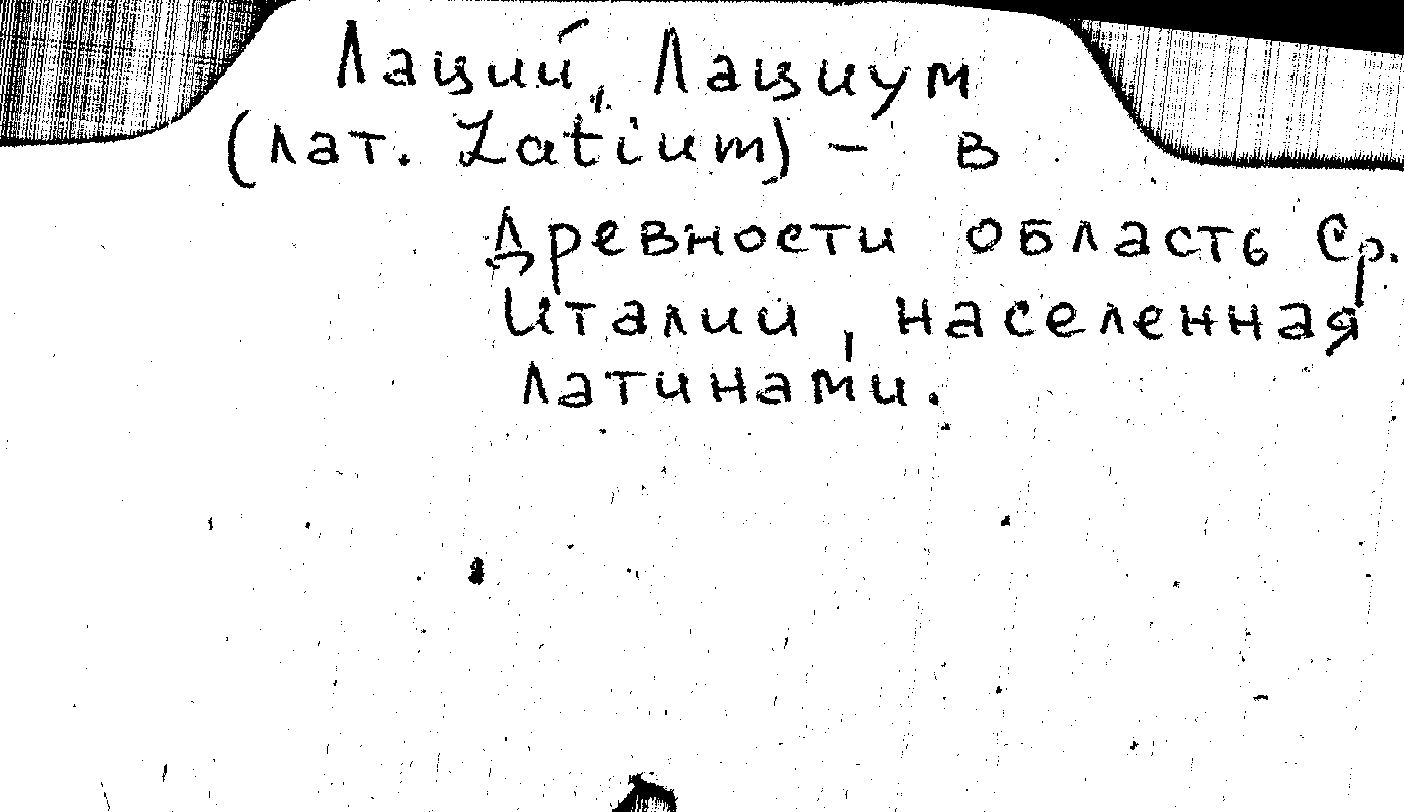 Лаций, Лациум
(лат. Latium) – в
древности область Ср.
Италии, населенная
латинами.